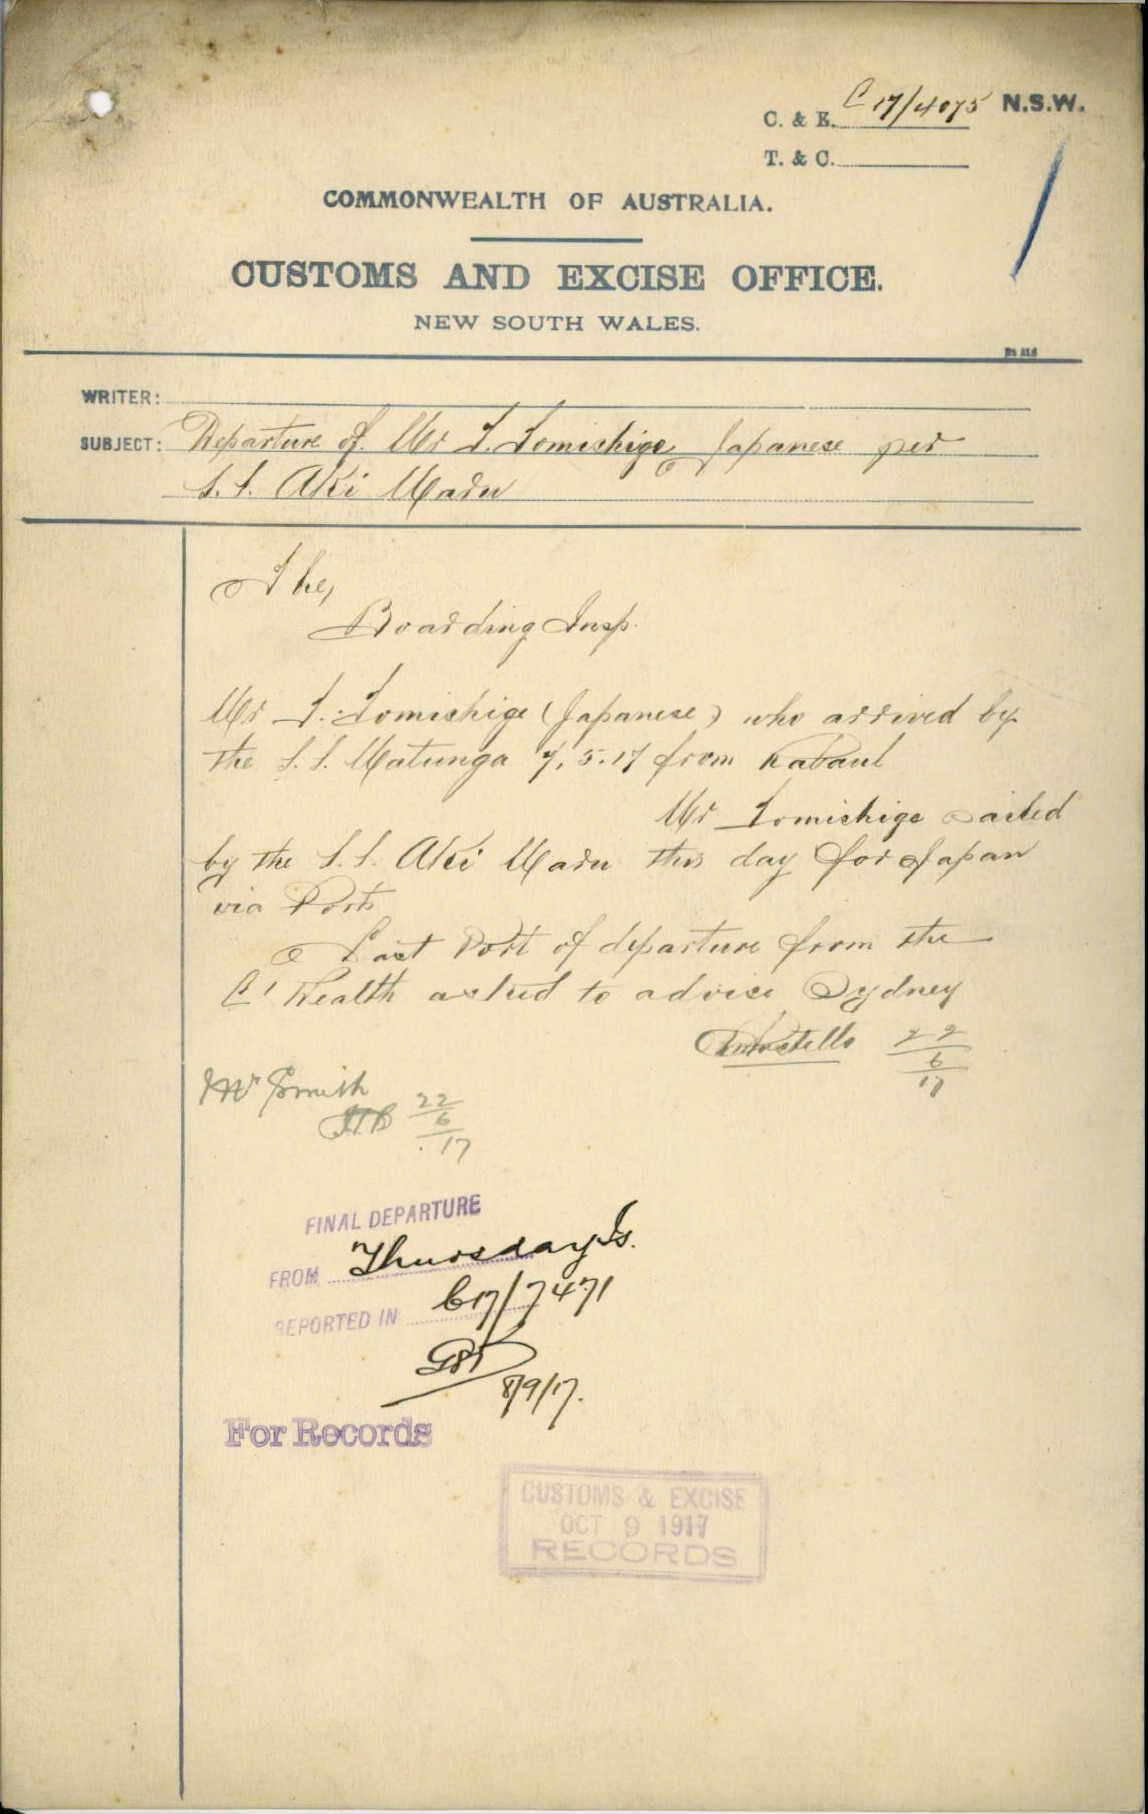 C. & E. C 17/4075 N.S.W.
T. & C.
COMMONWEALTH OF AUSTRALIA.
CUSTOMS AND EXCISE OFFICE.
NEW SOUTH WALES.
WRITER:
SUBJECT: Departure of Mr T. Tomishige Japanese per
S.S. Aki Maru
The,
Boarding Insp.
Mr T. Tomishige (Japanese) who arrived by
the S.S. Matunga 7.5.17 from Rabaul
Mr Tomishige sailed
by the S.S. Aki Maru this day for Japan
via Ports
Last Port of departure from the
C'wealth asked to advise Sydney
22
6
17
Mr Smith
22
6
17
FINAL DEPARTURE
FROM Thursday Is.
REPORTED IN C17/7471
8/9/17.
For Records
CUSTOMS & EXCISE
OCT 9 1917
RECORDS